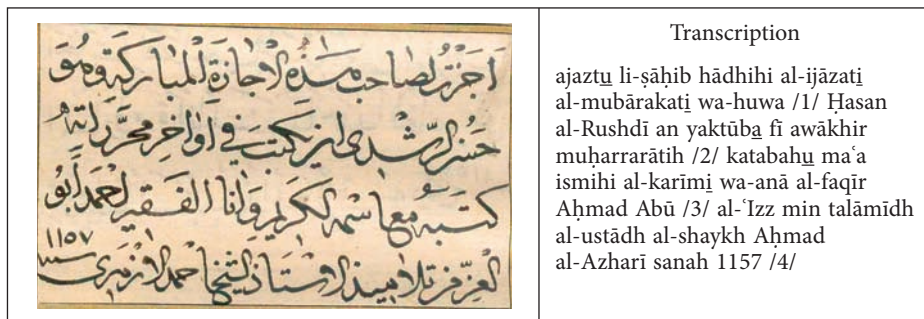 اجزت لصاحب هذه الاجازة المباركة وهو
حسن الرشدى ان يكتب فى اواخر محرراته
كتبه مع اسمه الكريم وانا الفقير احمد ابو
العز من تلاميذ الاستاذ الشيخ احمد الازميرى سنه ١١٥٧
Transcription
ajaztu li-ṣāḥib hādhihi al-ijāzati
al-mubārakati wa-huwa /1/ Ḥasan
al-Rushdī an yaktūba fī awākhir
muḥarrarātih /2/ katabahu maʿa
ismihi al-karīmi wa-anā al-faqīr
Aḥmad Abū /3/ al-ʿIzz min talāmīdh
al-ustādh al-shaykh Aḥmad
al-Azharī sanah 1157 /4/